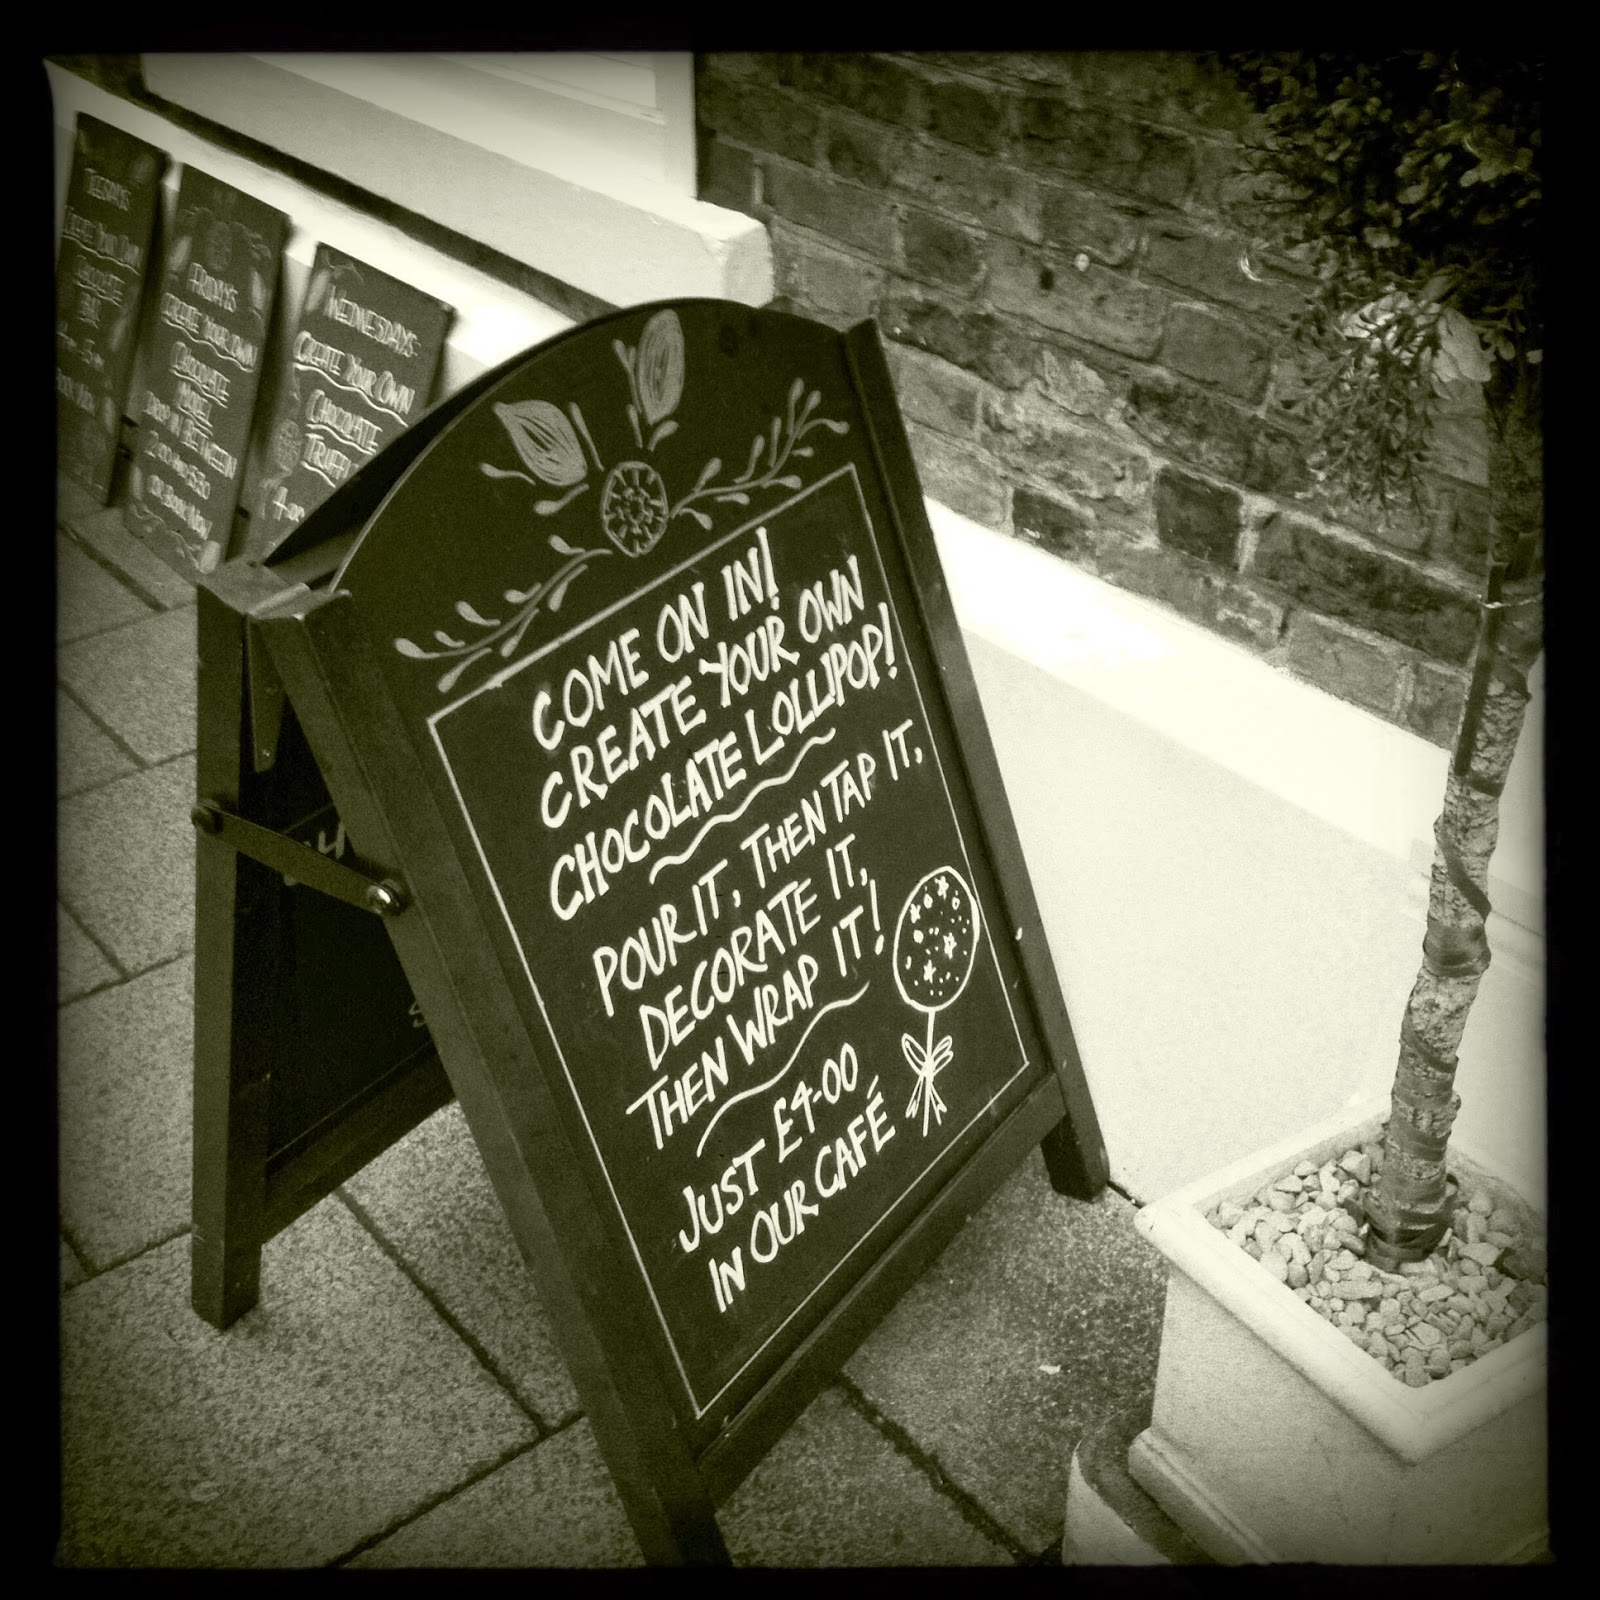 COME ON IN!
CREATE YOUR OWN
CHOCOLATE LOLLIPOP!
POUR IT, THEN TAP IT,
DECORATE IT,
THEN WRAP IT!
JUST £4-00
IN OUR CAFÉ
TUESDAYS
CREATE YOUR OWN
CHOCOLATE
BAR
BOOK NOW
FRIDAYS
CREATE YOUR OWN
CHOCOLATE
MODEL
DROP IN BETWEEN
OR BOOK NOW
WEDNESDAYS:
CREATE YOUR OWN
CHOCOLATE
4.00